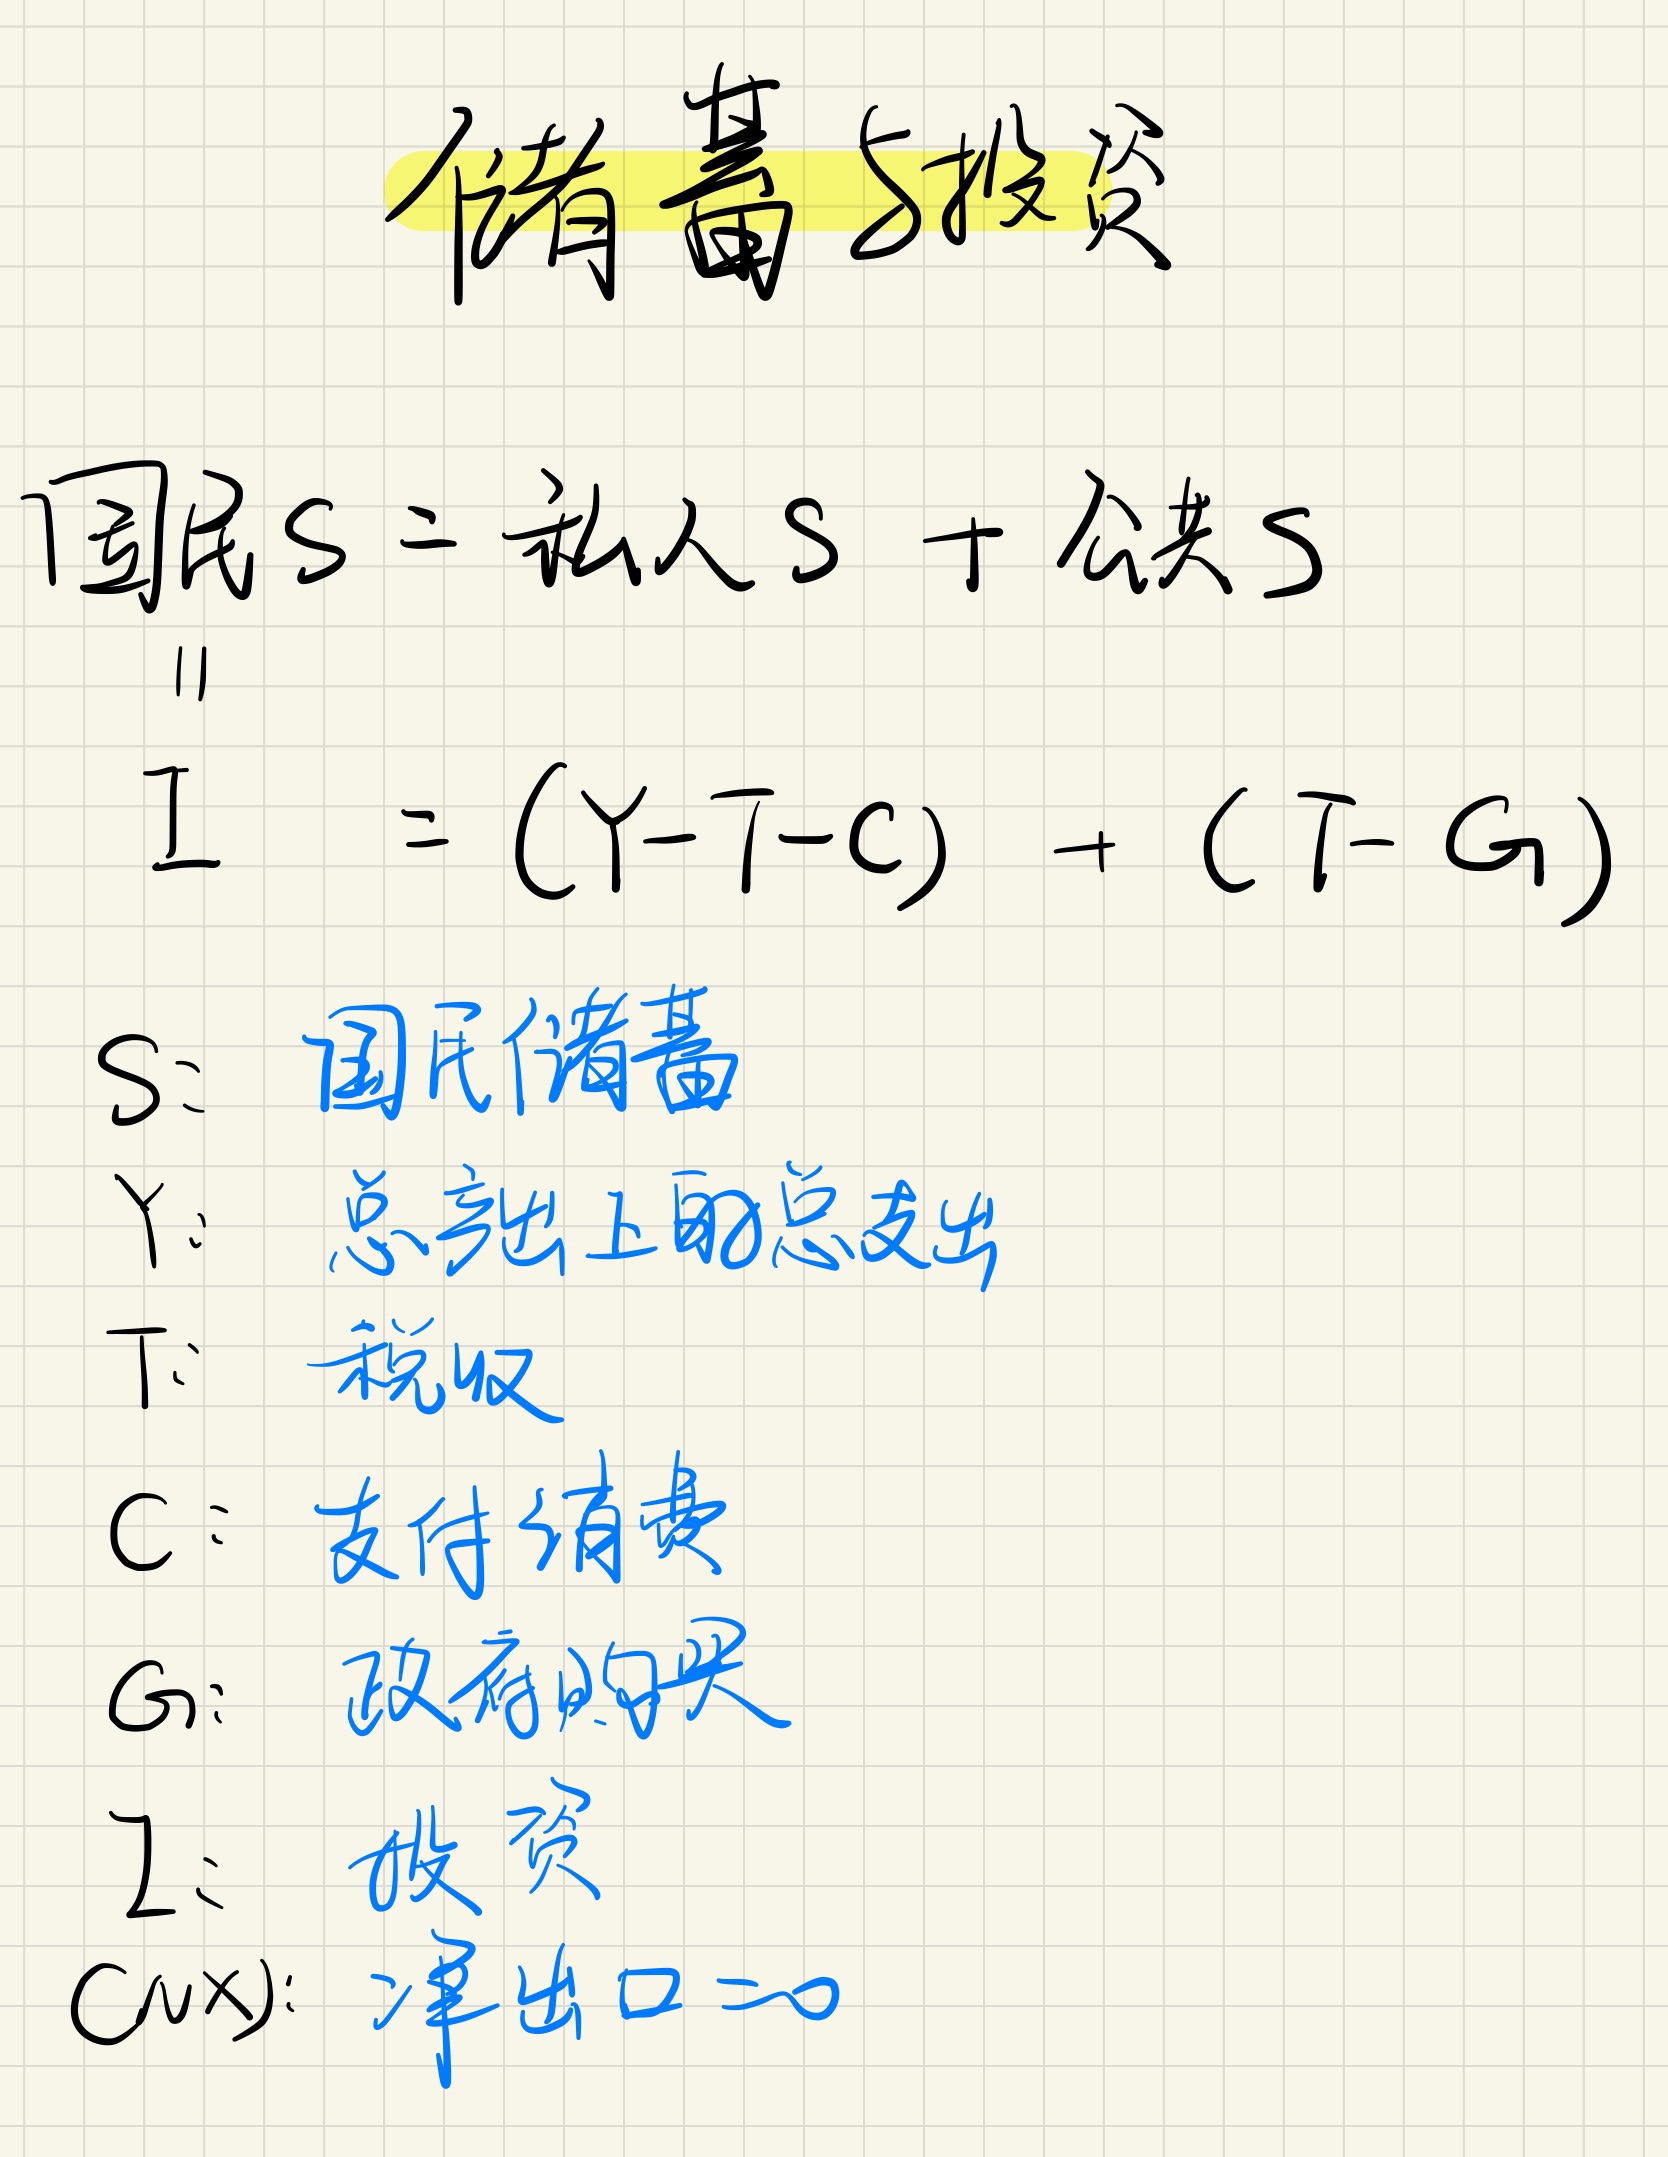 储蓄与投资
国民S = 私人S + 公共S
||
I = (Y-T-C) + (T-G)
S: 国民储蓄
Y: 总产出上的总支出
T: 税收
C: 支付消费
G: 政府购买
I: 投资
(NX): 净出口=0